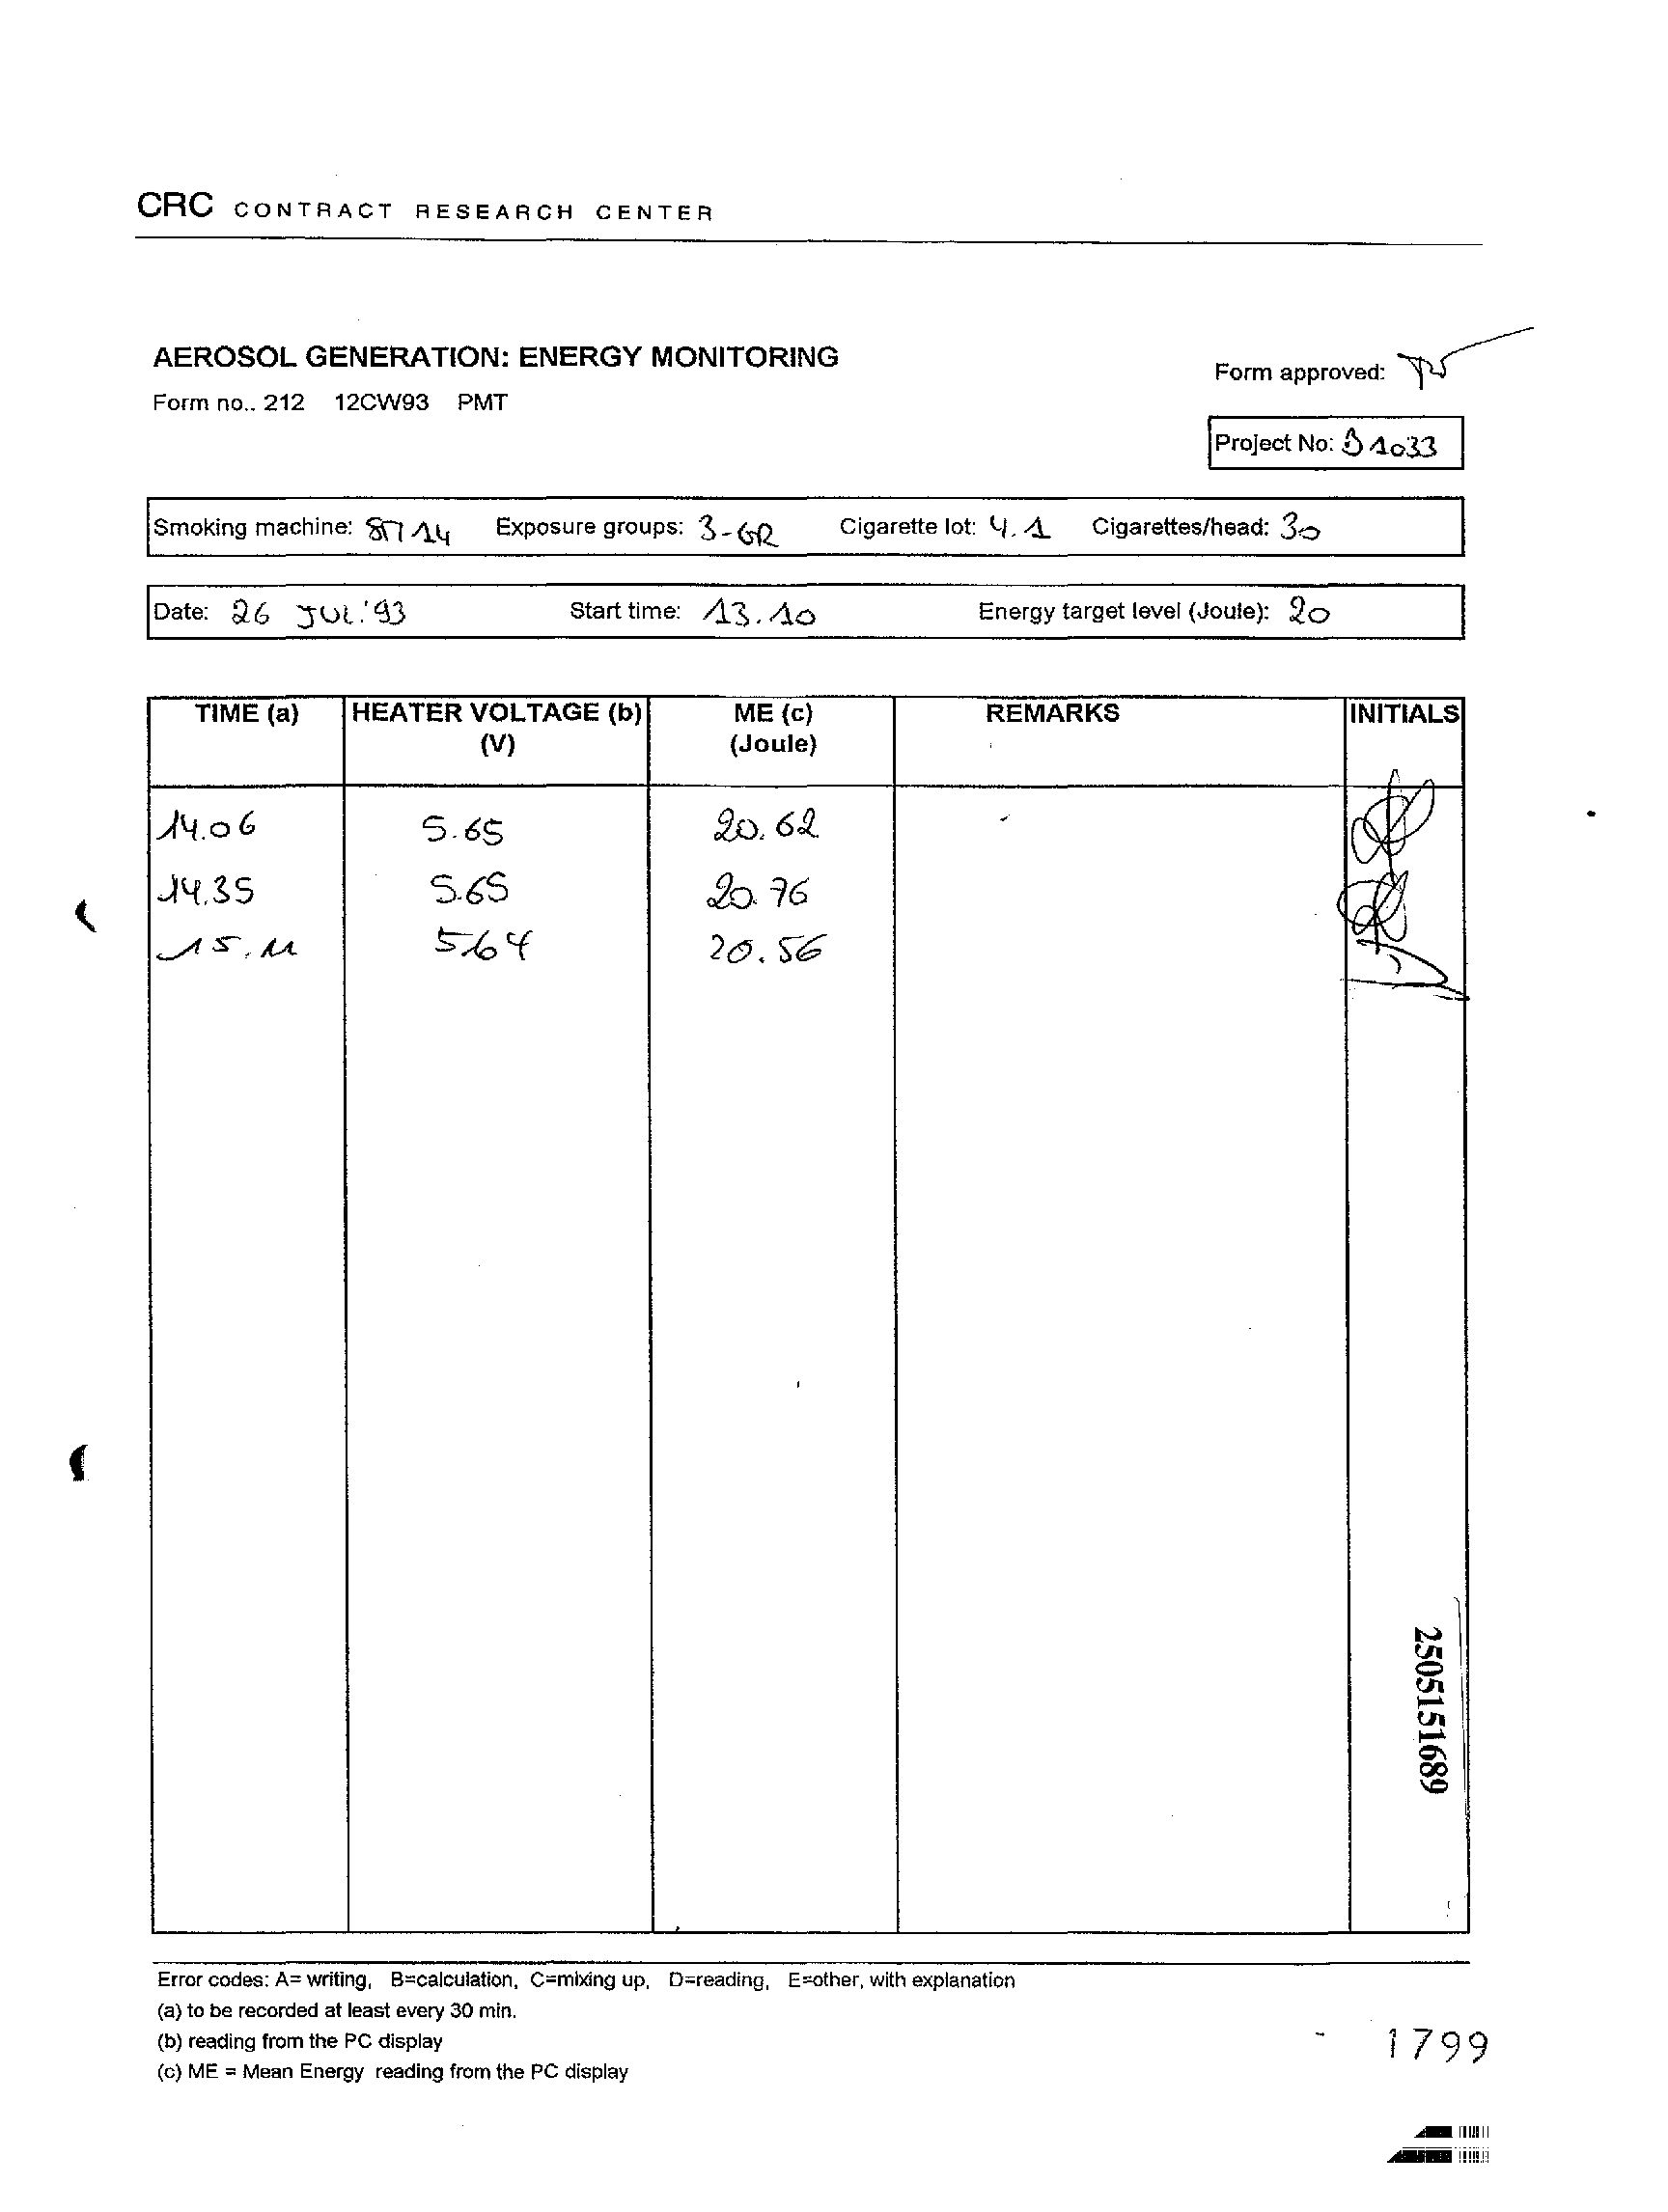 CRC CONTRACT RESEARCH CENTER
AEROSOL GENERATION: ENERGY MONITORING
Form no.. 212 12CW93 PMT
Form approved:
Project No: B1033
Smoking machine: 8714 Exposure groups: 3-GR Cigarette lot: 4.1 Cigarettes/head: 30
Date: 26 JUL.'93 Start time: 13.10 Energy target level (Joule): 20
TIME (a) HEATER VOLTAGE (b) (V) ME (c) (Joule) REMARKS INITIALS
14.06 5.65 20.62
14.35 5.65 20.76
15.11 5.64 20.56
2505151689
Error codes: A= writing, B=calculation, C=mixing up, D=reading, E=other, with explanation
(a) to be recorded at least every 30 min.
(b) reading from the PC display
(c) ME = Mean Energy reading from the PC display
1799